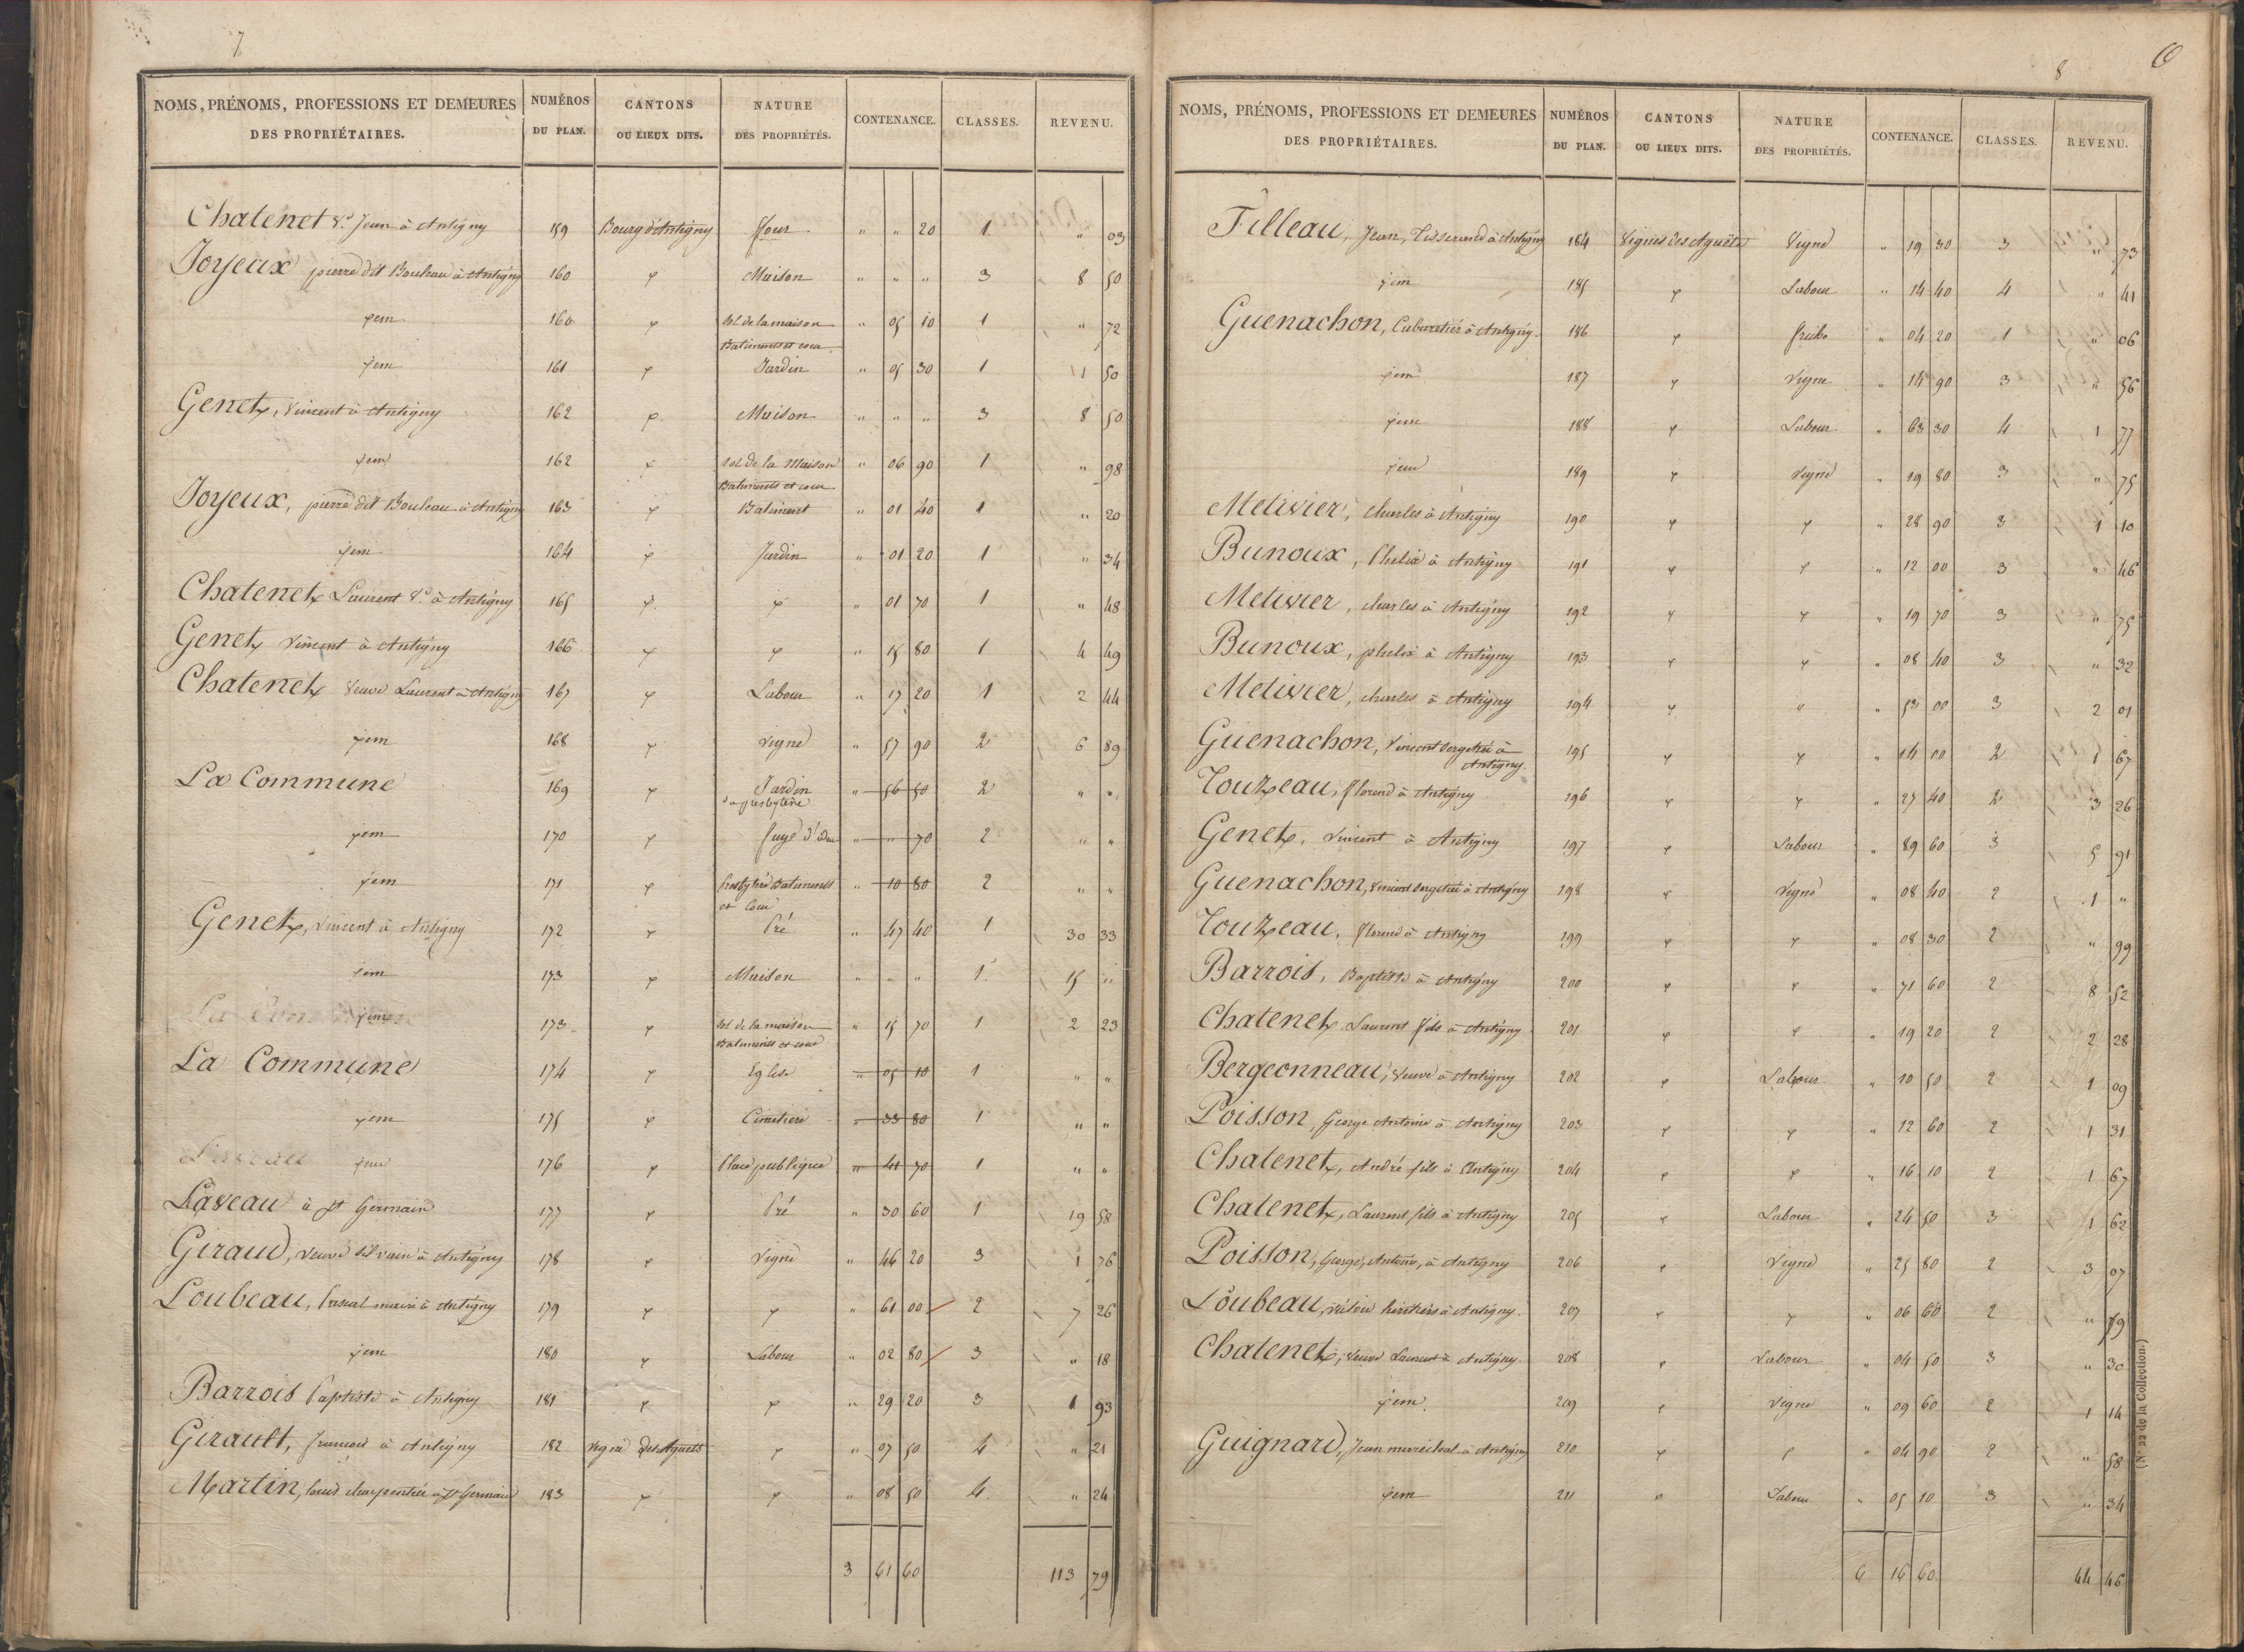 7
NOMS, PRÉNOMS, PROFESSIONS ET DEMEURES DES PROPRIÉTAIRES. NUMÉROS DU PLAN. CANTONS OU LIEUX DITS. NATURE DES PROPRIÉTÉS. CONTENANCE. CLASSES. REVENU.
Chatenet Vᵉ Jean à Antigny 159 Bourg d'Antigny four " " 20 1 " 03
Joyeux pierre dit Bouleau à Antigny 160 Maison " " " 3 8 50
160 sol de la maison Batiments et cour " 05 10 1 " 72
161 Jardin " 05 30 1 1 50
Genet, Vincent à Antigny 162 Maison " " " 3 8 50
162 sol de la Maison Batiments et cour " 06 90 1 " 98
Joyeux, pierre dit Bouleau à Antigny 163 Batiment " 01 40 1 " 20
164 Jardin " 01 20 1 " 34
Chatenet Laurent Vᵉ à Antigny 165 " 01 70 1 " 48
Genet Vincent à Antigny 166 " 15 80 1 4 49
Chatenet Veuve Laurent à Antigny 167 Labour " 17 20 1 2 44
168 Vigne " 57 90 2 6 89
La Commune 169 Jardin du presbytère " 56 50 2 " "
170 " " 70 2 " "
171 Presbytère Batiments et Cour " 10 80 2 " "
Genet, Vincent à Antigny 172 Pré " 47 40 1 30 33
173 Maison " " " 1 15 "
173 sol de la maison Batiments et cour " 15 70 1 2 23
La Commune 174 Eglise " 05 10 1 " "
175 Cimetiere " 33 80 1 " "
176 Place publique " 41 70 1 " "
Laveau à St Germain 177 Pré " 30 60 1 19 58
Giraud, veuve Silvain à Antigny 178 Vigne " 46 20 3 1 76
Loubeau, Pascal maire à Antigny 179 " 61 00 2 7 26
180 Labour " 02 80 3 " 18
Barrois Baptiste à Antigny 181 " 29 20 3 1 93
Girault, francois à Antigny 182 Vigne des Aguets " 07 50 4 " 21
Martin, Louis charpentier à St Germain 183 " 08 50 4 " 24
3 61 60 113 79
8
6
NOMS, PRÉNOMS, PROFESSIONS ET DEMEURES DES PROPRIÉTAIRES. NUMÉROS DU PLAN. CANTONS OU LIEUX DITS. NATURE DES PROPRIÉTÉS. CONTENANCE. CLASSES. REVENU.
Filleau, Jean, Tisserand à Antigny 184 Vignes des Aguets Vigne " 19 30 3 " 73
185 Labour " 14 40 4 " 41
Guenachon, Cabaretier à Antigny 186 friche " 04 20 1 " 06
187 Vigne " 14 90 3 " 56
188 Labour " 63 30 4 1 77
189 Vigne " 19 80 3 " 75
Metivier, charles à Antigny 190 " 28 90 3 1 10
Bunoux, Phelix à Antigny 191 " 12 00 3 " 46
Metivier, charles à Antigny 192 " 19 70 3 " 75
Bunoux, phelix à Antigny 193 " 08 40 3 " 32
Metivier, charles à Antigny 194 " 53 00 3 2 01
Guenachon, Vincent sergetier à Antigny. 195 " 14 00 2 1 67
Touzeau, florend à Antigny 196 " 27 40 2 3 26
Genet, Vincent à Antigny 197 Labour " 89 60 3 5 91
Guenachon, Vincent sergetier à Antigny 198 Vigne " 08 40 2 1 "
Touzeau, florend à Antigny 199 " 08 30 2 " 99
Barrois, Baptiste à Antigny 200 " 71 60 2 8 52
Chatenet Laurent fils à Antigny 201 " 19 20 2 2 28
Bergeonneau, Veuve à Antigny 202 Labour " 10 50 2 1 09
Poisson, George Antoine à Antigny 203 " 12 60 2 1 31
Chatenet, André fils à Antigny 204 " 16 10 2 1 67
Chatenet, Laurent fils à Antigny 205 Labour " 24 50 3 1 62
Poisson, George, Antoine, à Antigny 206 Vigne " 25 80 2 3 07
Loubeau, héritiers à Antigny. 207 " 06 60 2 " 79
Chatenet, Veuve Laurent à Antigny 208 Labour " 04 50 3 " 30
209 Vigne " 09 60 2 1 14
Guignard, Jean marechal à Antigny 210 " 04 90 2 " 58
211 Labour " 05 10 3 " 34
6 16 60 44 46
(N° 22 de la Collection.)